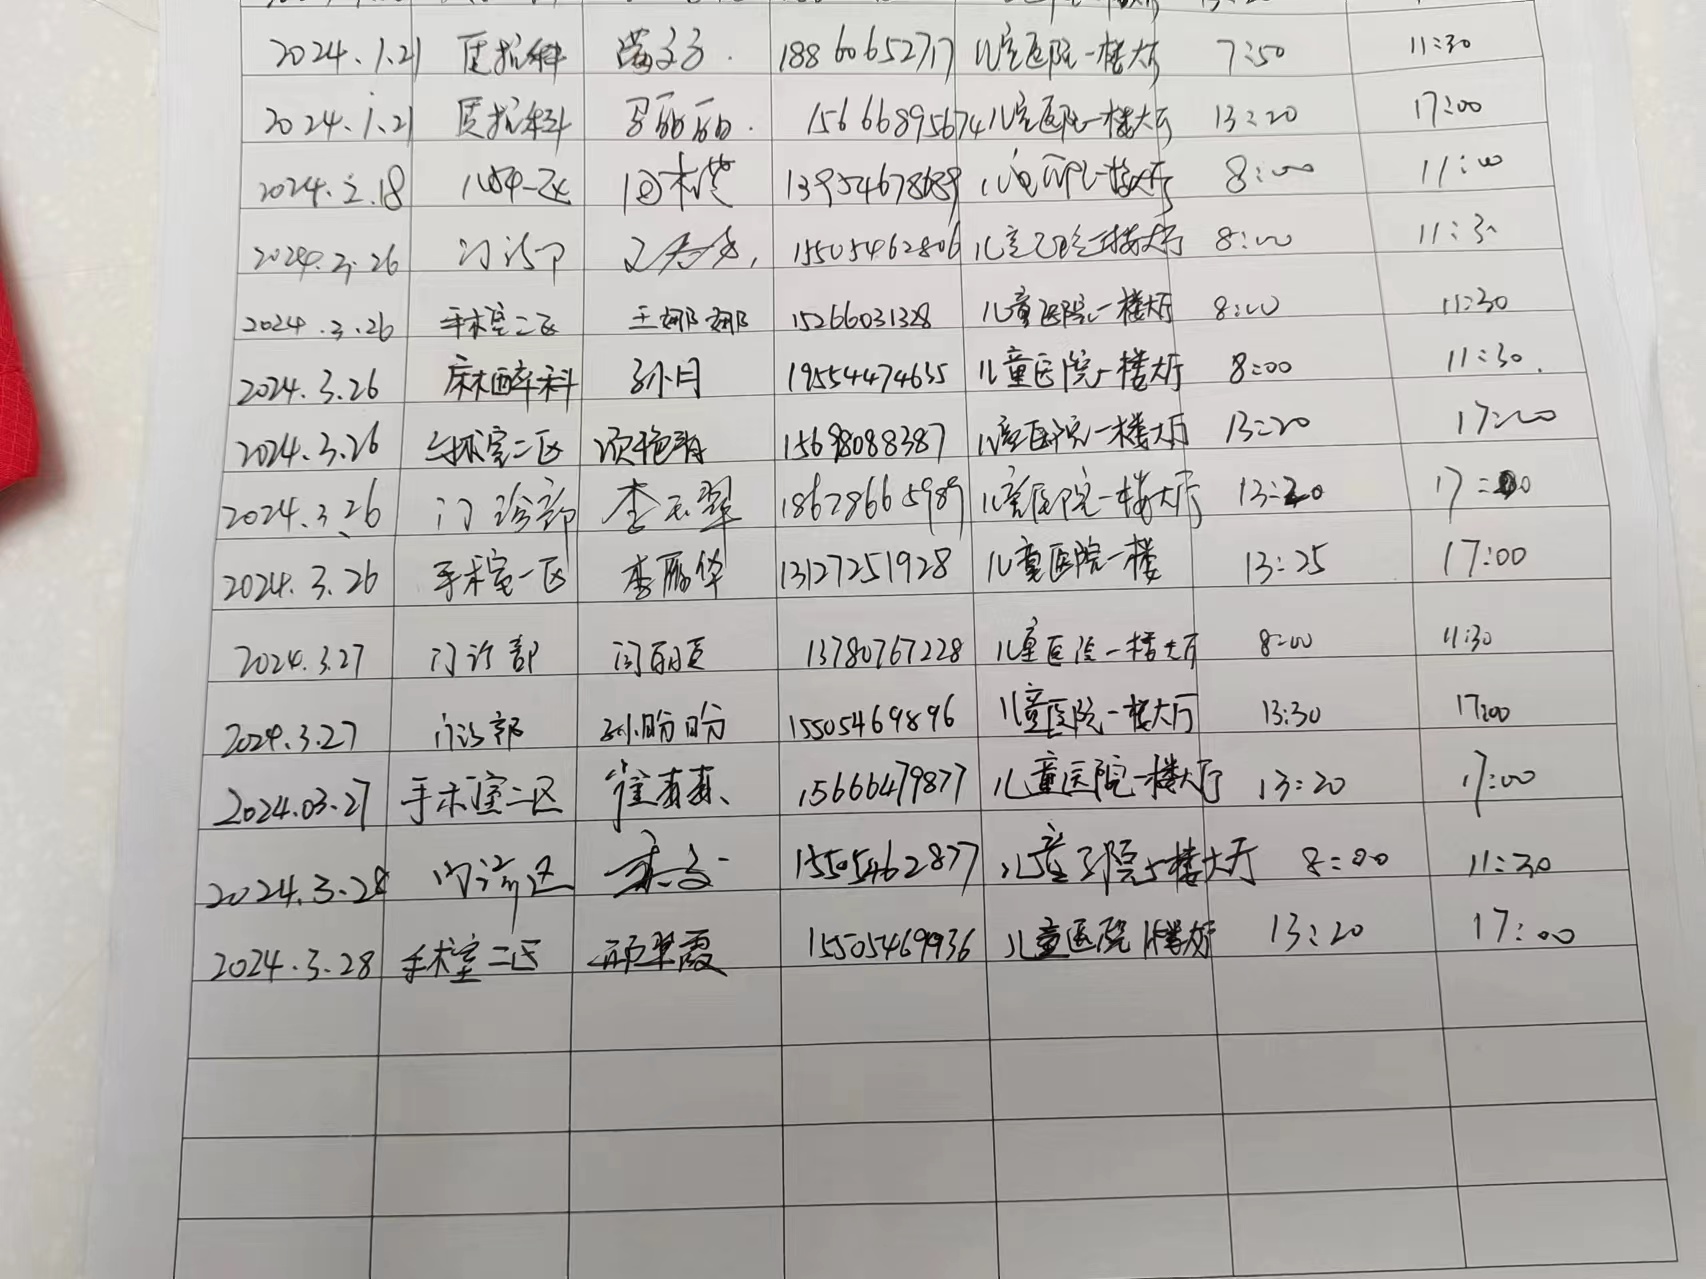 2024.1.21 医护科 18860652717 儿童医院一楼大厅 7:50 11:30
2024.1.21 医护科 丽丽. 15666895674 儿童医院一楼大厅 13:20 17:00
2024.2.18 一区 8:00 11:00
2024.3.26 门诊部 15505462806 儿童医院一楼大厅 8:00 11:30
2024.3.26 手术室二区 王娜娜 15266031328 儿童医院一楼大厅 8:00 11:30
2024.3.26 麻醉科 孙月 19554474635 儿童医院一楼大厅 8:00 11:30.
2024.3.26 手术室二区 15698088387 儿童医院一楼大厅 13:20 17:00
2024.3.26 门诊部 李玉翠 18678665989 儿童医院一楼大厅 13:20 17:00
2024.3.26 手术室一区 李丽华 13127251928 儿童医院一楼 13:25 17:00
2024.3.27 门诊部 13780767228 儿童医院一楼大厅 8:00 11:30
2024.3.27 门诊部 孙盼盼 15505469896 儿童医院一楼大厅 13:30 17:00
2024.03.27 手术室二区 崔真真、 15666479877 儿童医院一楼大厅 13:20 17:00
2024.3.28 门诊 15505462877 儿童医院一楼大厅 8:00 11:30
2024.3.28 手术室二区 翠霞 15505469936 儿童医院1楼大厅 13:20 17:00